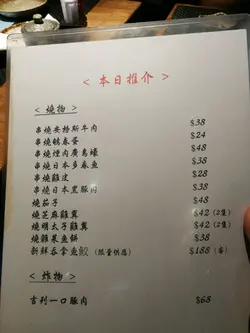 < 本日推介 >
< 燒物 >
串燒安格斯牛肉 $38
串燒鵪春蛋 $24
串燒煙肉廣島蠔 $48
串燒日本多春魚 $38
串燒雞皮 $28
串燒日本黑豚肉 $38
燒茄子 $48
燒芝麻雞翼 $42 (2隻)
燒明太子雞翼 $42 (2隻)
燒雞泉魚餅 $38
新鮮吞拿魚鮫 (限量供應) $188 (客)
< 炸物 >
吉列一口豚肉 $68